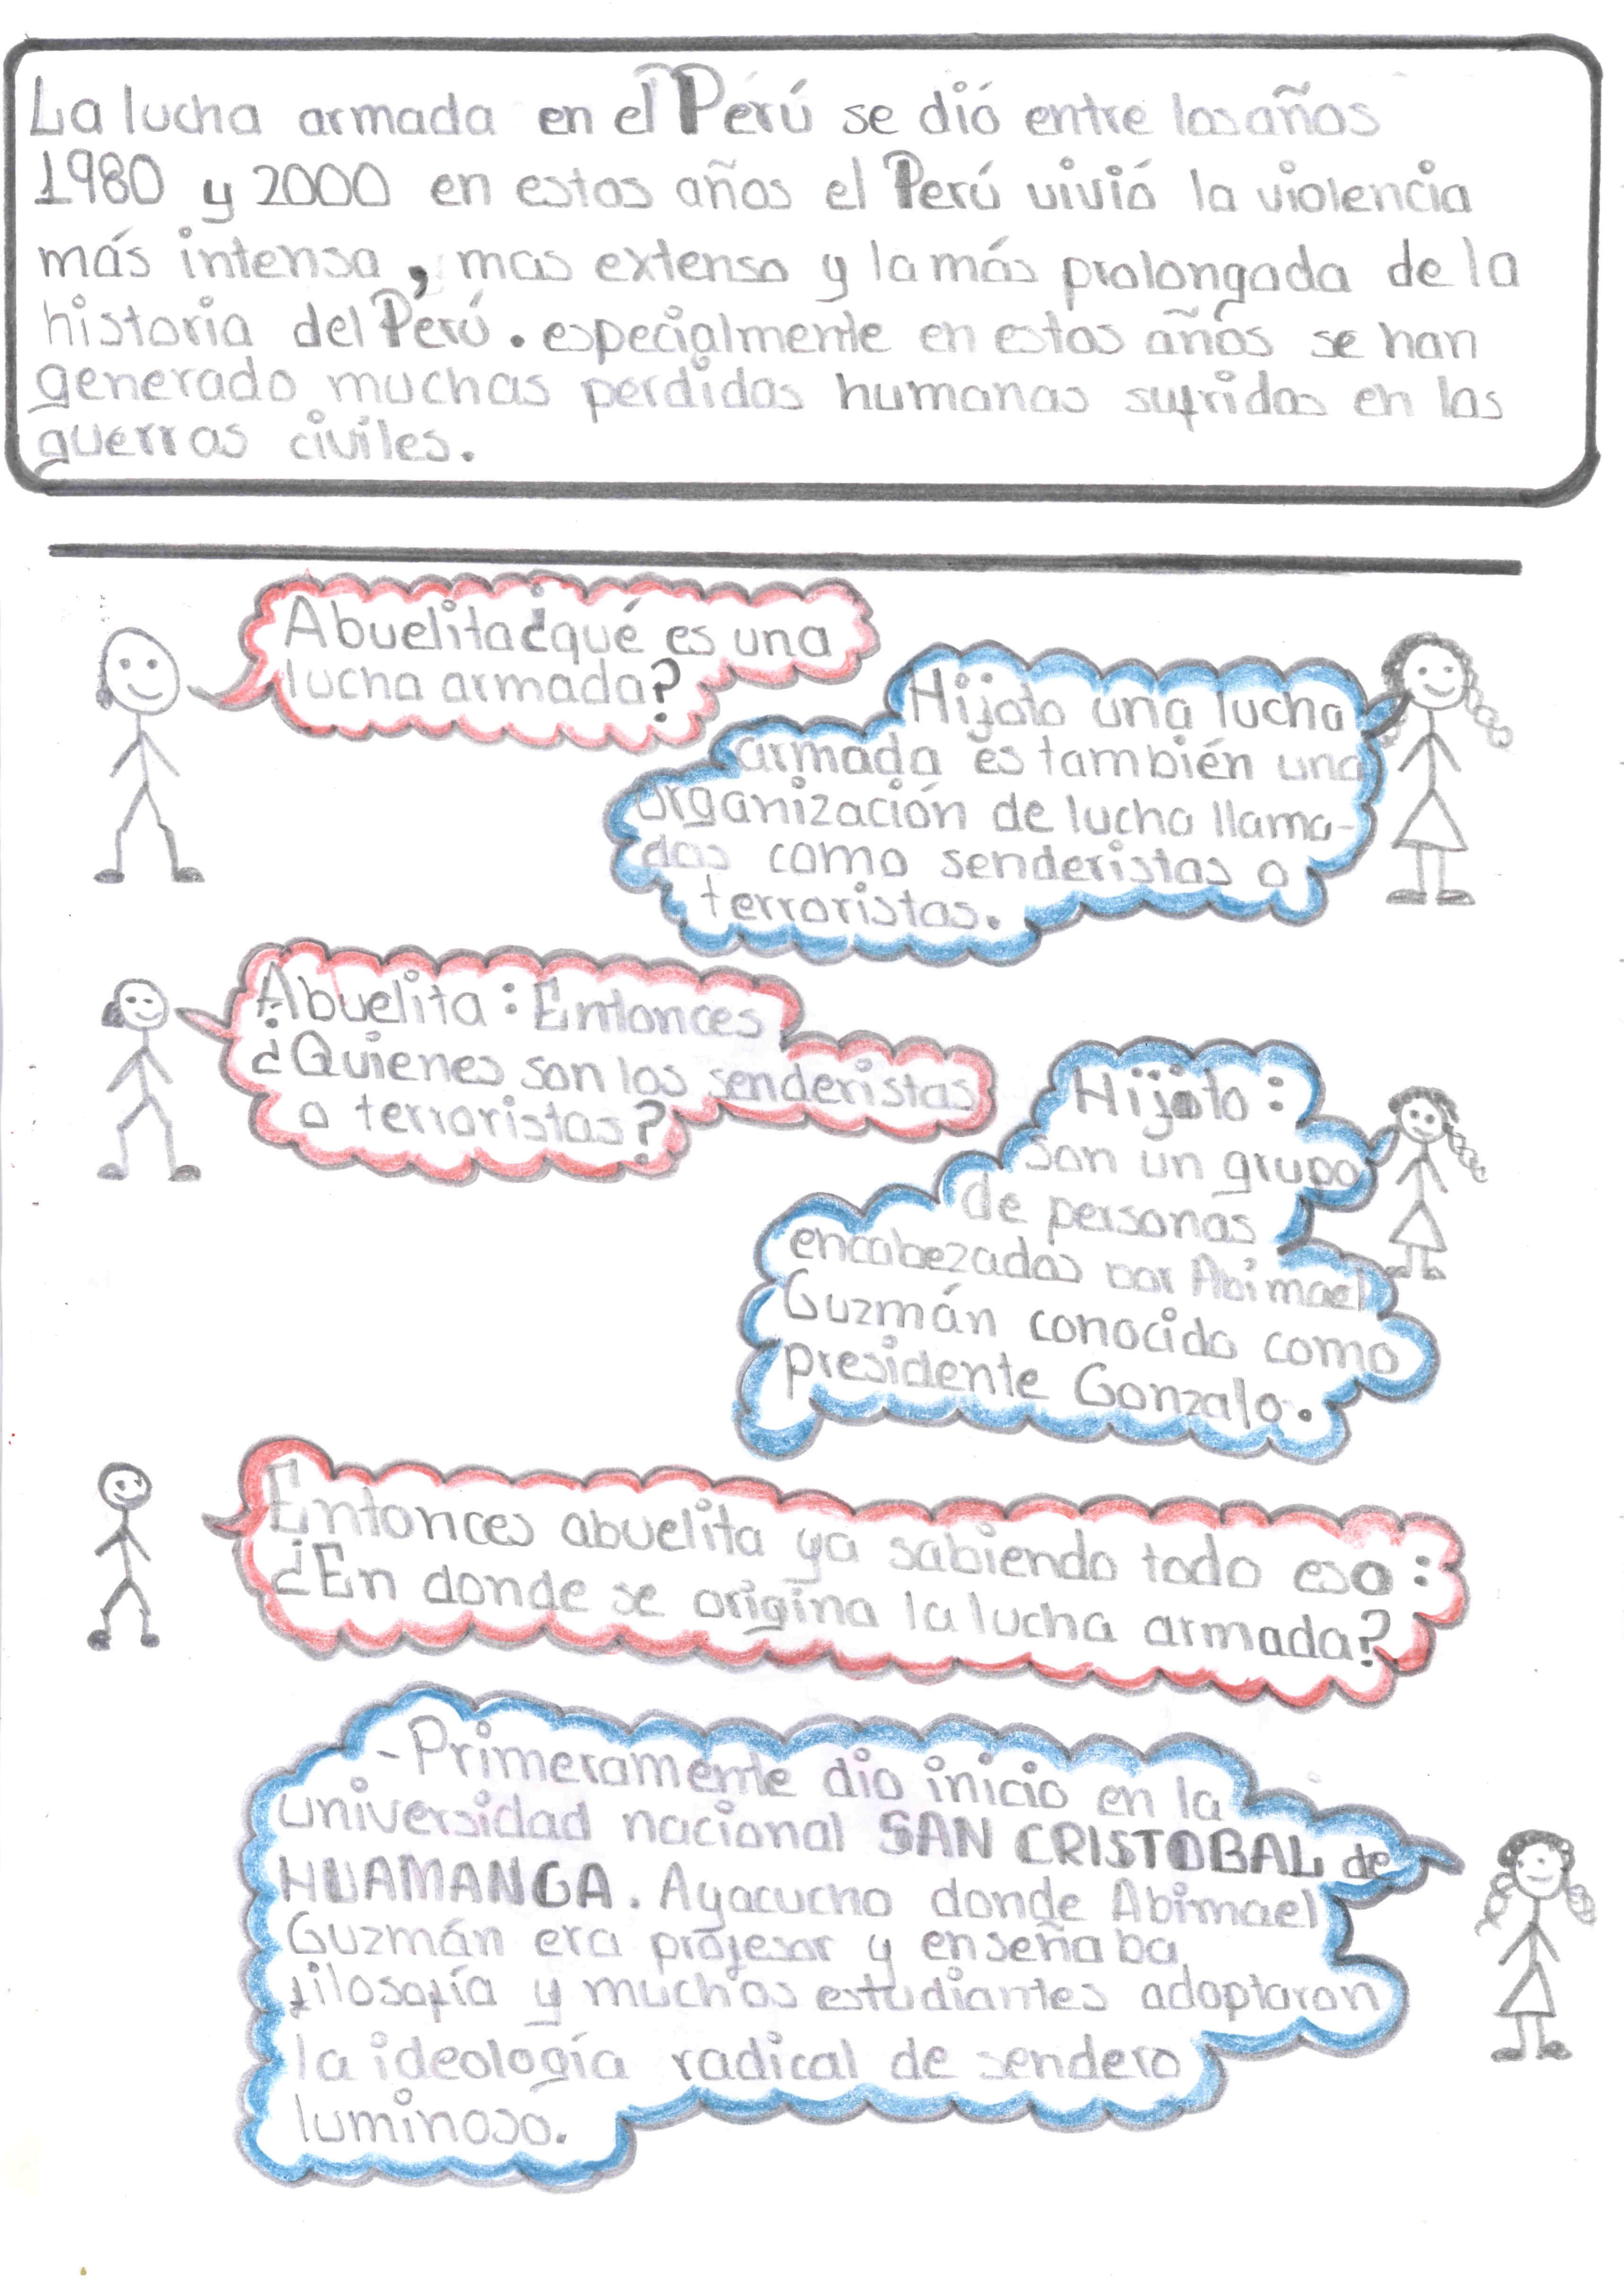 La lucha armada en el Perú se dió entre los años
1980 y 2000 en estos años el Perú vivió la violencia
más intensa, mas extensa y la más prolongada de la
historia del Perú. especialmente en estos años se han
generado muchas perdidas humanas sufridas en las
guerras civiles.
Abuelita ¿qué es una
lucha armada?
Hijoto una lucha
armada es también una
organización de lucha llama-
das como senderistas o
terroristas.
Abuelita: Entonces
¿Quienes son los senderistas
o terroristas?
Hijoto:
son un grupo
de personas
encabezados por Abimael
Guzmán conocido como
presidente Gonzalo.
Entonces abuelita ya sabiendo todo eso:
¿En donde se origina la lucha armada?
- Primeramente dio inicio en la
universidad nacional SAN CRISTOBAL de
HUAMANGA. Ayacucho donde Abimael
Guzmán era profesor y enseñaba
filosofía y muchos estudiantes adoptaron
la ideología radical de sendero
luminoso.